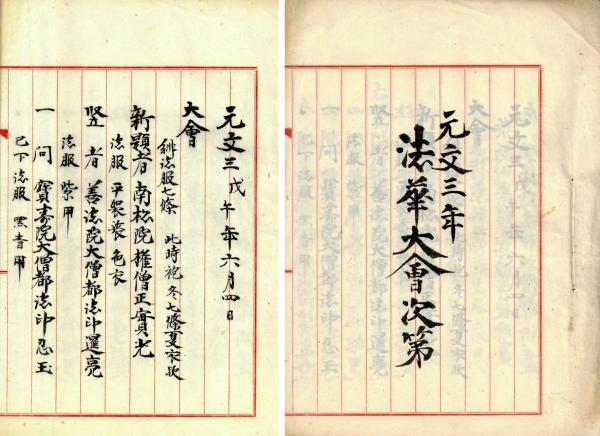 元文三年
法華大會次第
元文三戊午年六月四日
大會
緋法服七條 此時袍冬七條夏宗欤
新題者南松院権僧正實光
法服 平袈裟 色衣
竪者 善法院大僧都法印暹亮
法服 紫甲
一問 寳壽院大僧都法印忍玉
已下法服 黒青甲